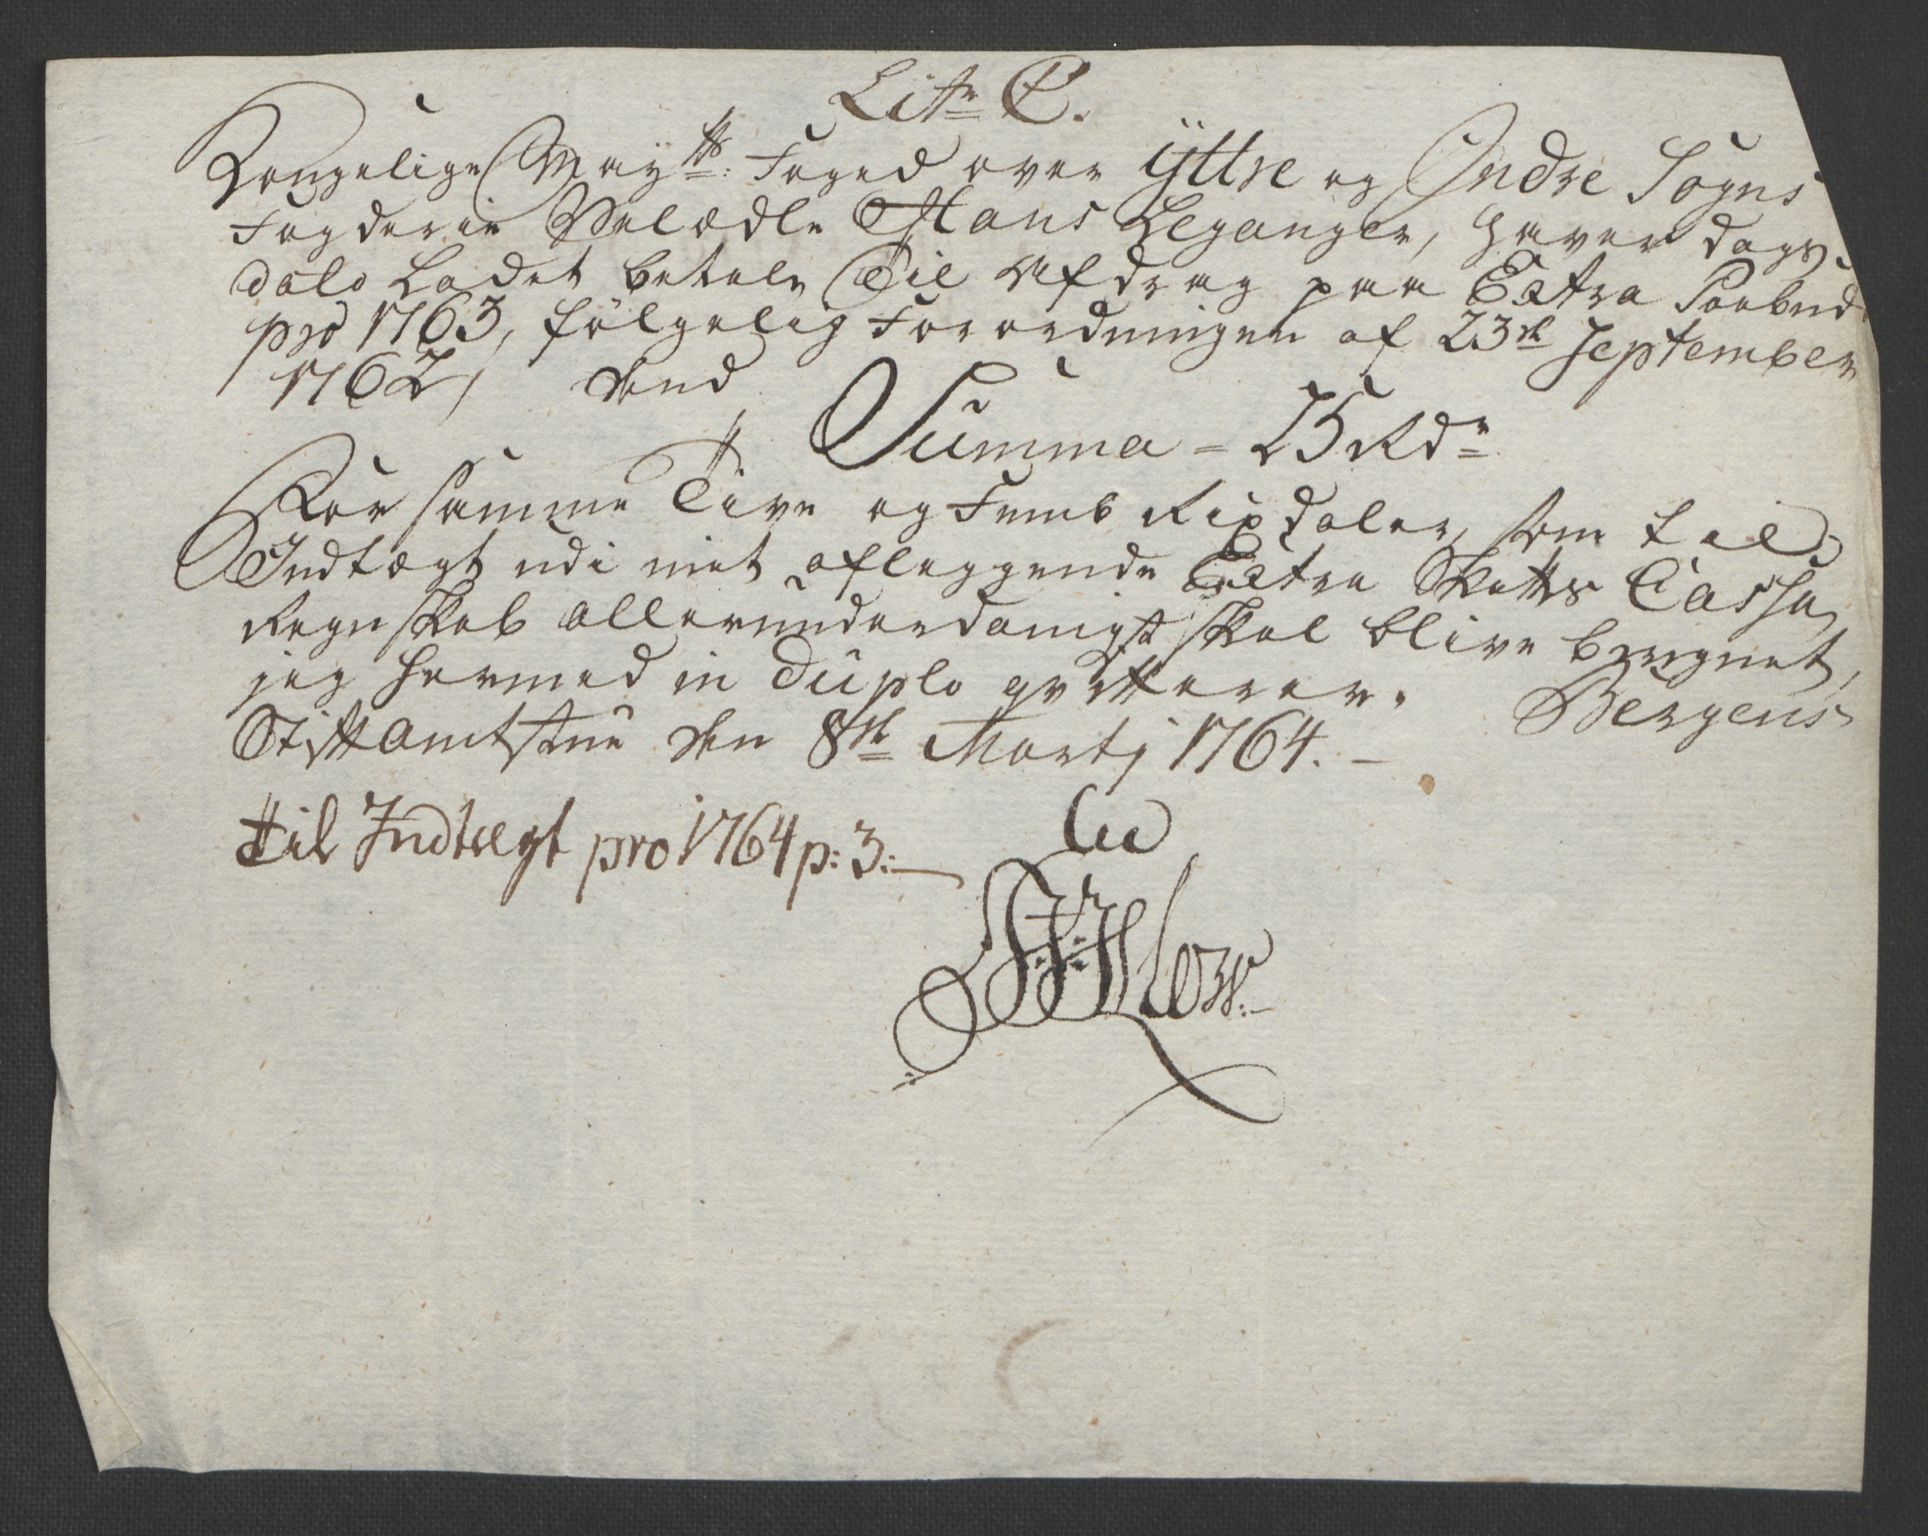 Litr C.
Kongelige Mayts: Foged over Ÿttre og Indre Sogns
Fogderie Velædle Hans Leganger, haver dags
dato Ladet betale Til Afdrag paa Extra Paabud
pro 1763, fölgelig Forordningen af 23de September
1762, dend
Summa = 25 Rdr
For samme Tive og Femb Rixdaler, som til
Indtægt udi mit aflæggende Extra Skatts Cassa
Regnskab allerunderdanigst skal blive beregnet,
jeg hermed in duplo qvitterer. Bergens
Stiftamtstue den 8de Martj 1764. –
til Indtægt pro 1764 p: 3:
Low.